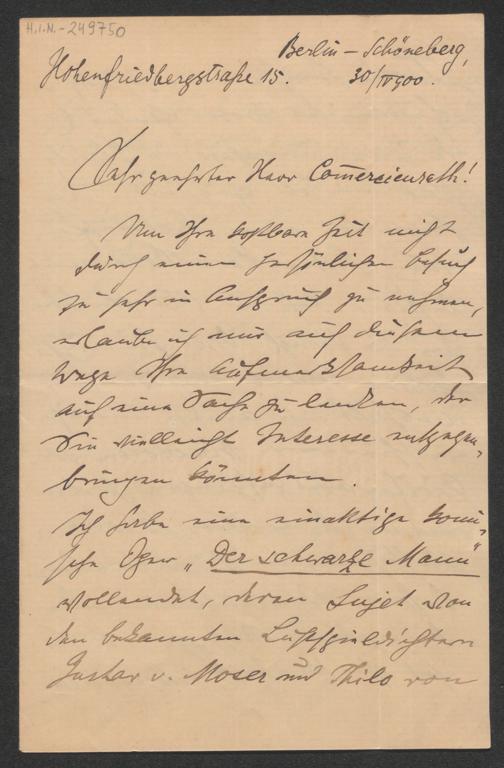 H.I.N.-249750
Berlin – Schöneberg,
Hohenfriedbergstraße 15. 30/IV 900.
Sehr geehrter Herr Com̅ercienrath!
Um Ihre kostbare Zeit nicht
durch einen persönlichen Besuch
zu sehr in Anspruch zu nehmen,
erlaube ich mir auf diesem
Wege Ihre Aufmerksamkeit
auf eine Sache zu lenken, der
Sie vielleicht Interesse entgegen-
bringen könnten.
Ich habe eine einaktige komi-
sche Oper „Der schwarze Mann"
vollendet, deren Sujet von
den bekannten Lustspieldichtern
Gustav v. Moser und Thilo von